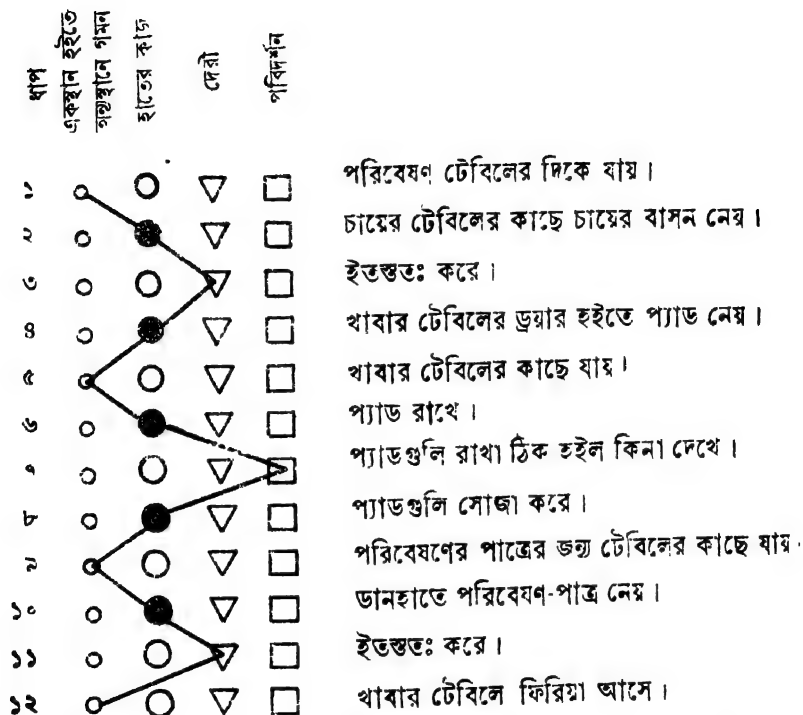 ধাপ
একস্থান হইতে
অন্যস্থানে গমন
হাতের কাজ
দেরী
পরিদর্শন
১ পরিবেষণ টেবিলের দিকে যায়।
২ চায়ের টেবিলের কাছে চায়ের বাসন নেয়।
৩ ইতস্ততঃ করে।
৪ খাবার টেবিলের ড্রয়ার হইতে প্যাড নেয়।
৫ খাবার টেবিলের কাছে যায়।
৬ প্যাড রাখে।
৭ প্যাডগুলি রাখা ঠিক হইল কিনা দেখে।
৮ প্যাডগুলি সোজা করে।
৯ পরিবেষণের পাত্রের জন্য টেবিলের কাছে যায়.
১০ ডানহাতে পরিবেষণ-পাত্র নেয়।
১১ ইতস্ততঃ করে।
১২ খাবার টেবিলে ফিরিয়া আসে।